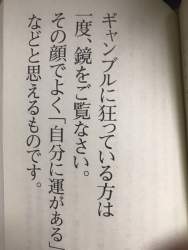 ギャンブルに狂っている方は
一度、鏡をご覧なさい。
その顔でよく「自分に運がある」
などと思えるものです。